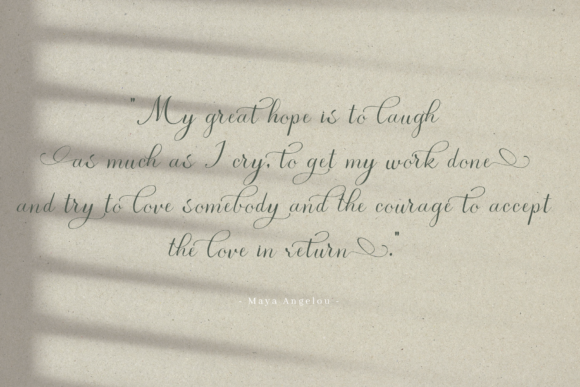 "My great hope is to laugh
as much as I cry, to get my work done
and try to love somebody and the courage to accept
the love in return."
- Maya Angelou -